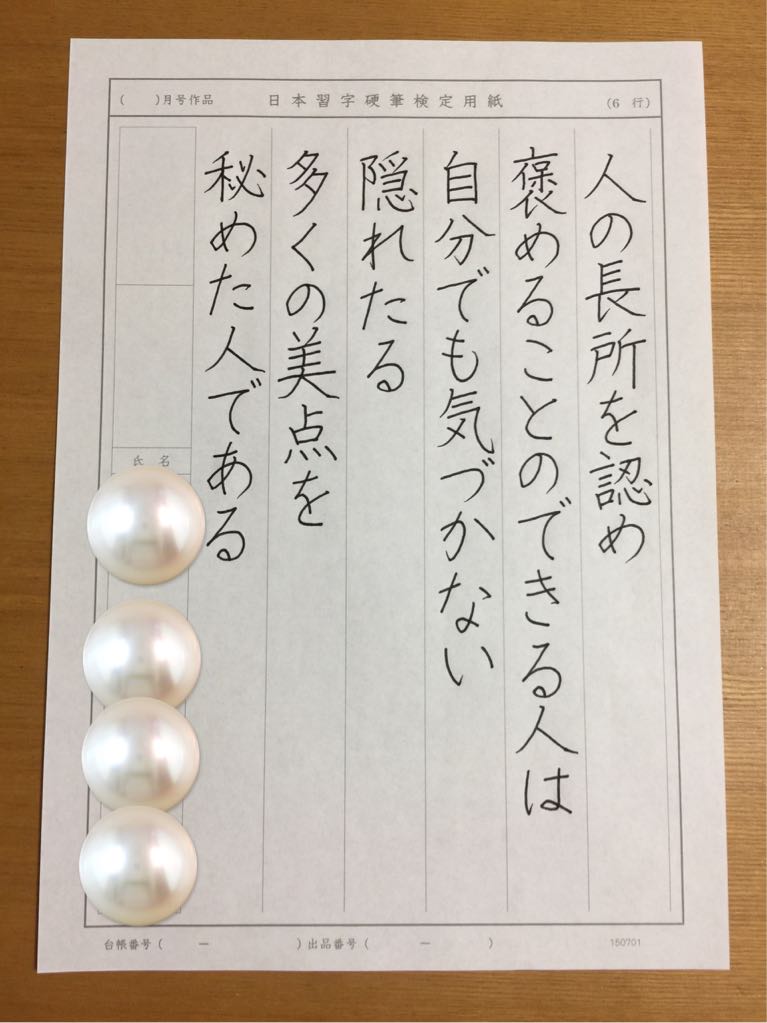 (　　)月号作品　日本習字硬筆検定用紙　(6 行)
人の長所を認め
褒めることのできる人は
自分でも気づかない
隠れたる
多くの美点を
秘めた人である
氏名
台帳番号(　　－　　)出品番号(　　－　　)　150701